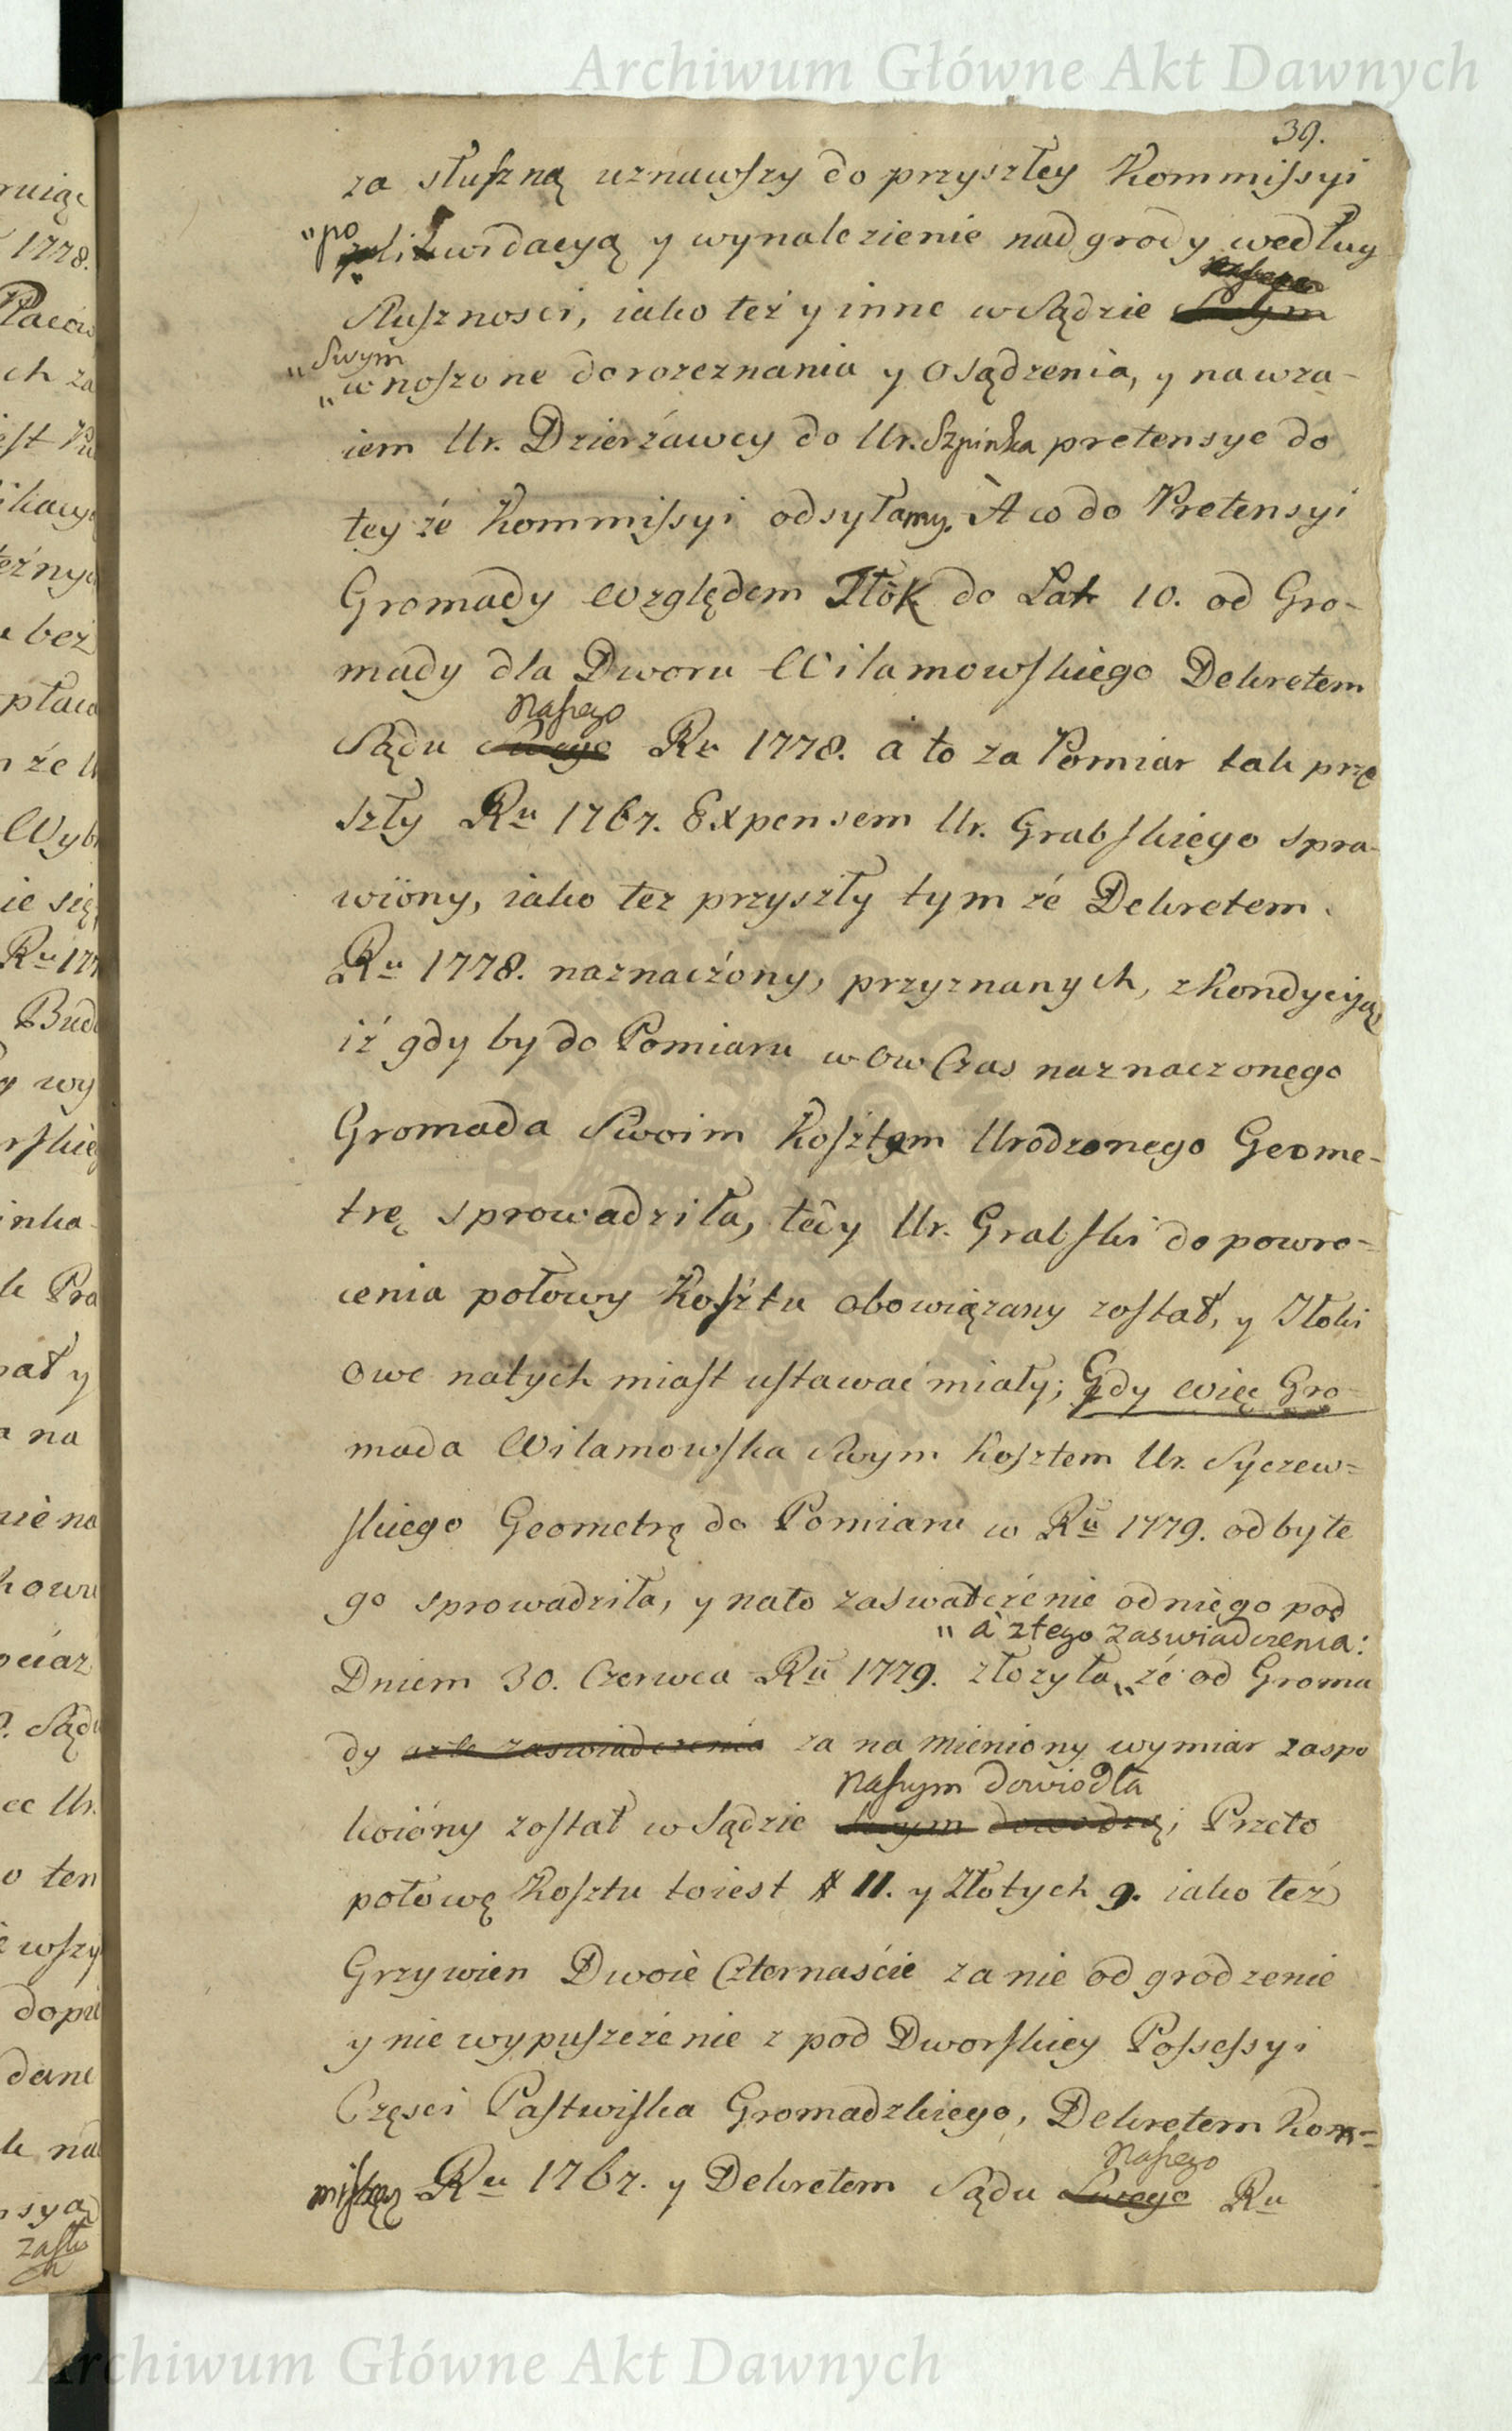 Archiwum Główne Akt Dawnych
39.
za słuszną uznawszy do przyszłey Kommissyi
"po
likwidacyą y wynalezienie nadgrody według
naszego
Słusznosci, iako też y inne w Sądzie Swym
"Swym
"wnoszone do rozeznania y osądzenia, y nawza-
iem Ur. Dzierżawcy do Ur. Szpinka pretensye do
tey że Kommissyi odsyłamy. A co do Pretensyi
Gromady względem Tłók do Lat 10. od Gro-
mady dla Dworu Wilamowskiego Dekretem
naszego
Sądu Swego Ru 1778. á to za Pomiar tak prze
szły Ru 1767. Expensem Ur. Grabskiego spra-
wiony, iako tez przyszły tym że Dekretem
Ru 1778. naznaczony, przyznanych, z kondycyą,
iż gdy by do Pomiaru w ow Czas naznaczonego
Gromada Swoim Kosztem Urodzonego Geome-
trę sprowadziła, tedy Ur. Grabski do powro-
cenia połowy Kosztu obowiązany został, y Tłoki
owe natych miast ustawać miały; Gdy więc Gro-
mada Wilamowska Swym Kosztem Ur. Syczew-
skiego Geometrę do Pomiaru w Ru 1779. odbyte
go sprowadziła, y nato zaswiatczenie od niego pod
" à z tego zaswiadczenia:
Dniem 30. Czerwca Ru 1779. złozyła " że od Groma
dy a z te zaswiadczenia za na mieniony wymiar zaspo
naszym dowiodła
koióny został w Sądzie Swym dowodzą; Przeto
połowę Kosztu toiest # 11. y Złotych 9. iako też
Grzywien Dwoie Czternaście za nie odgrodzenie
y nie wypuszczenie z pod Dworskiey Possessyi
Częsci Pastwiska Gromadzkiego, Dekretem Kom-
naszego
Ru 1767. y Dekretem Sądu Swego Ru
Archiwum Główne Akt Dawnych